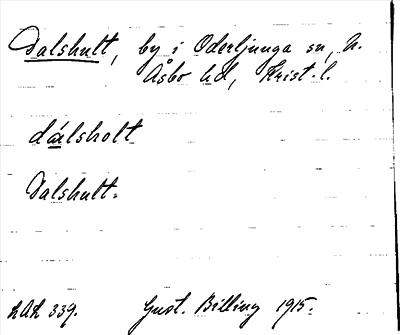 Dalshult, by i Oderljunga sn, N.
Åsbo hd, Krist. l.
dálsholt
Dalshult.
LAL 339. Gust. Billing 1915.